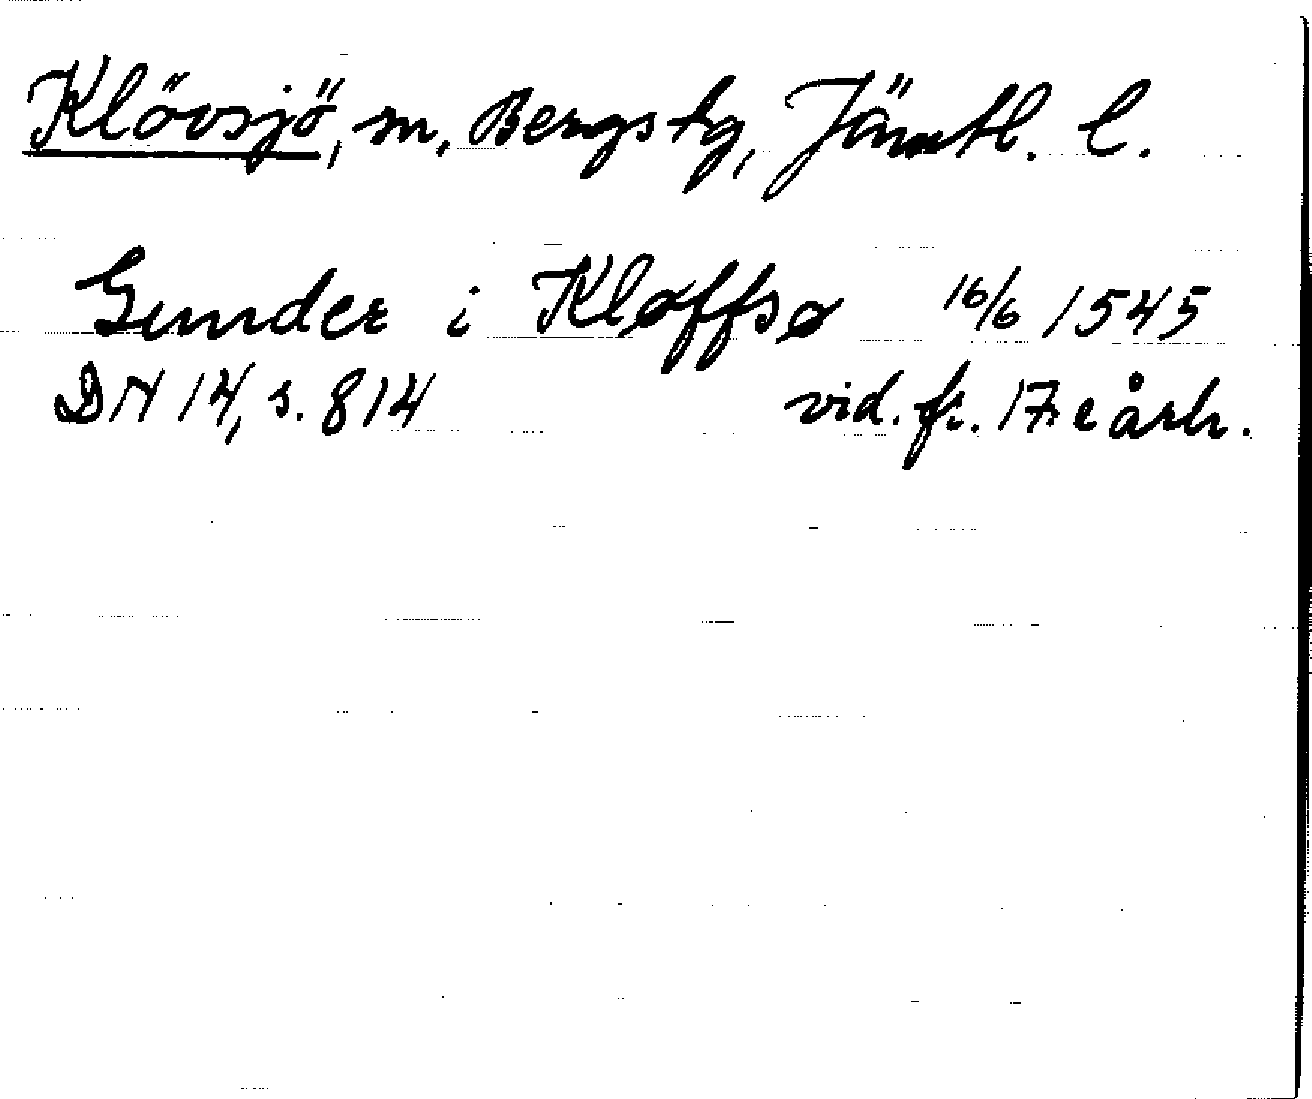 Klövsjö, sn, Bergs tg, Jämtl. l.
Gunder i Kløffsø 16/6 1545
DN 14, s. 814 vid. fr. 17:e årh.